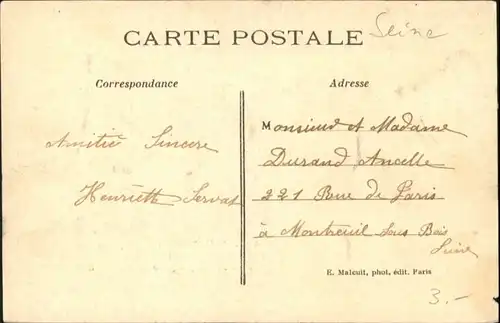 CARTE POSTALE
Seine
Correspondance
Adresse
Amitié Sincère
Henriette Servat
Monsieur et Madame
Durand Ancelle
221 Rue de Paris
à Montreuil Sous Bois
Seine
E. Malcuit, phot, édit. Paris
3.-